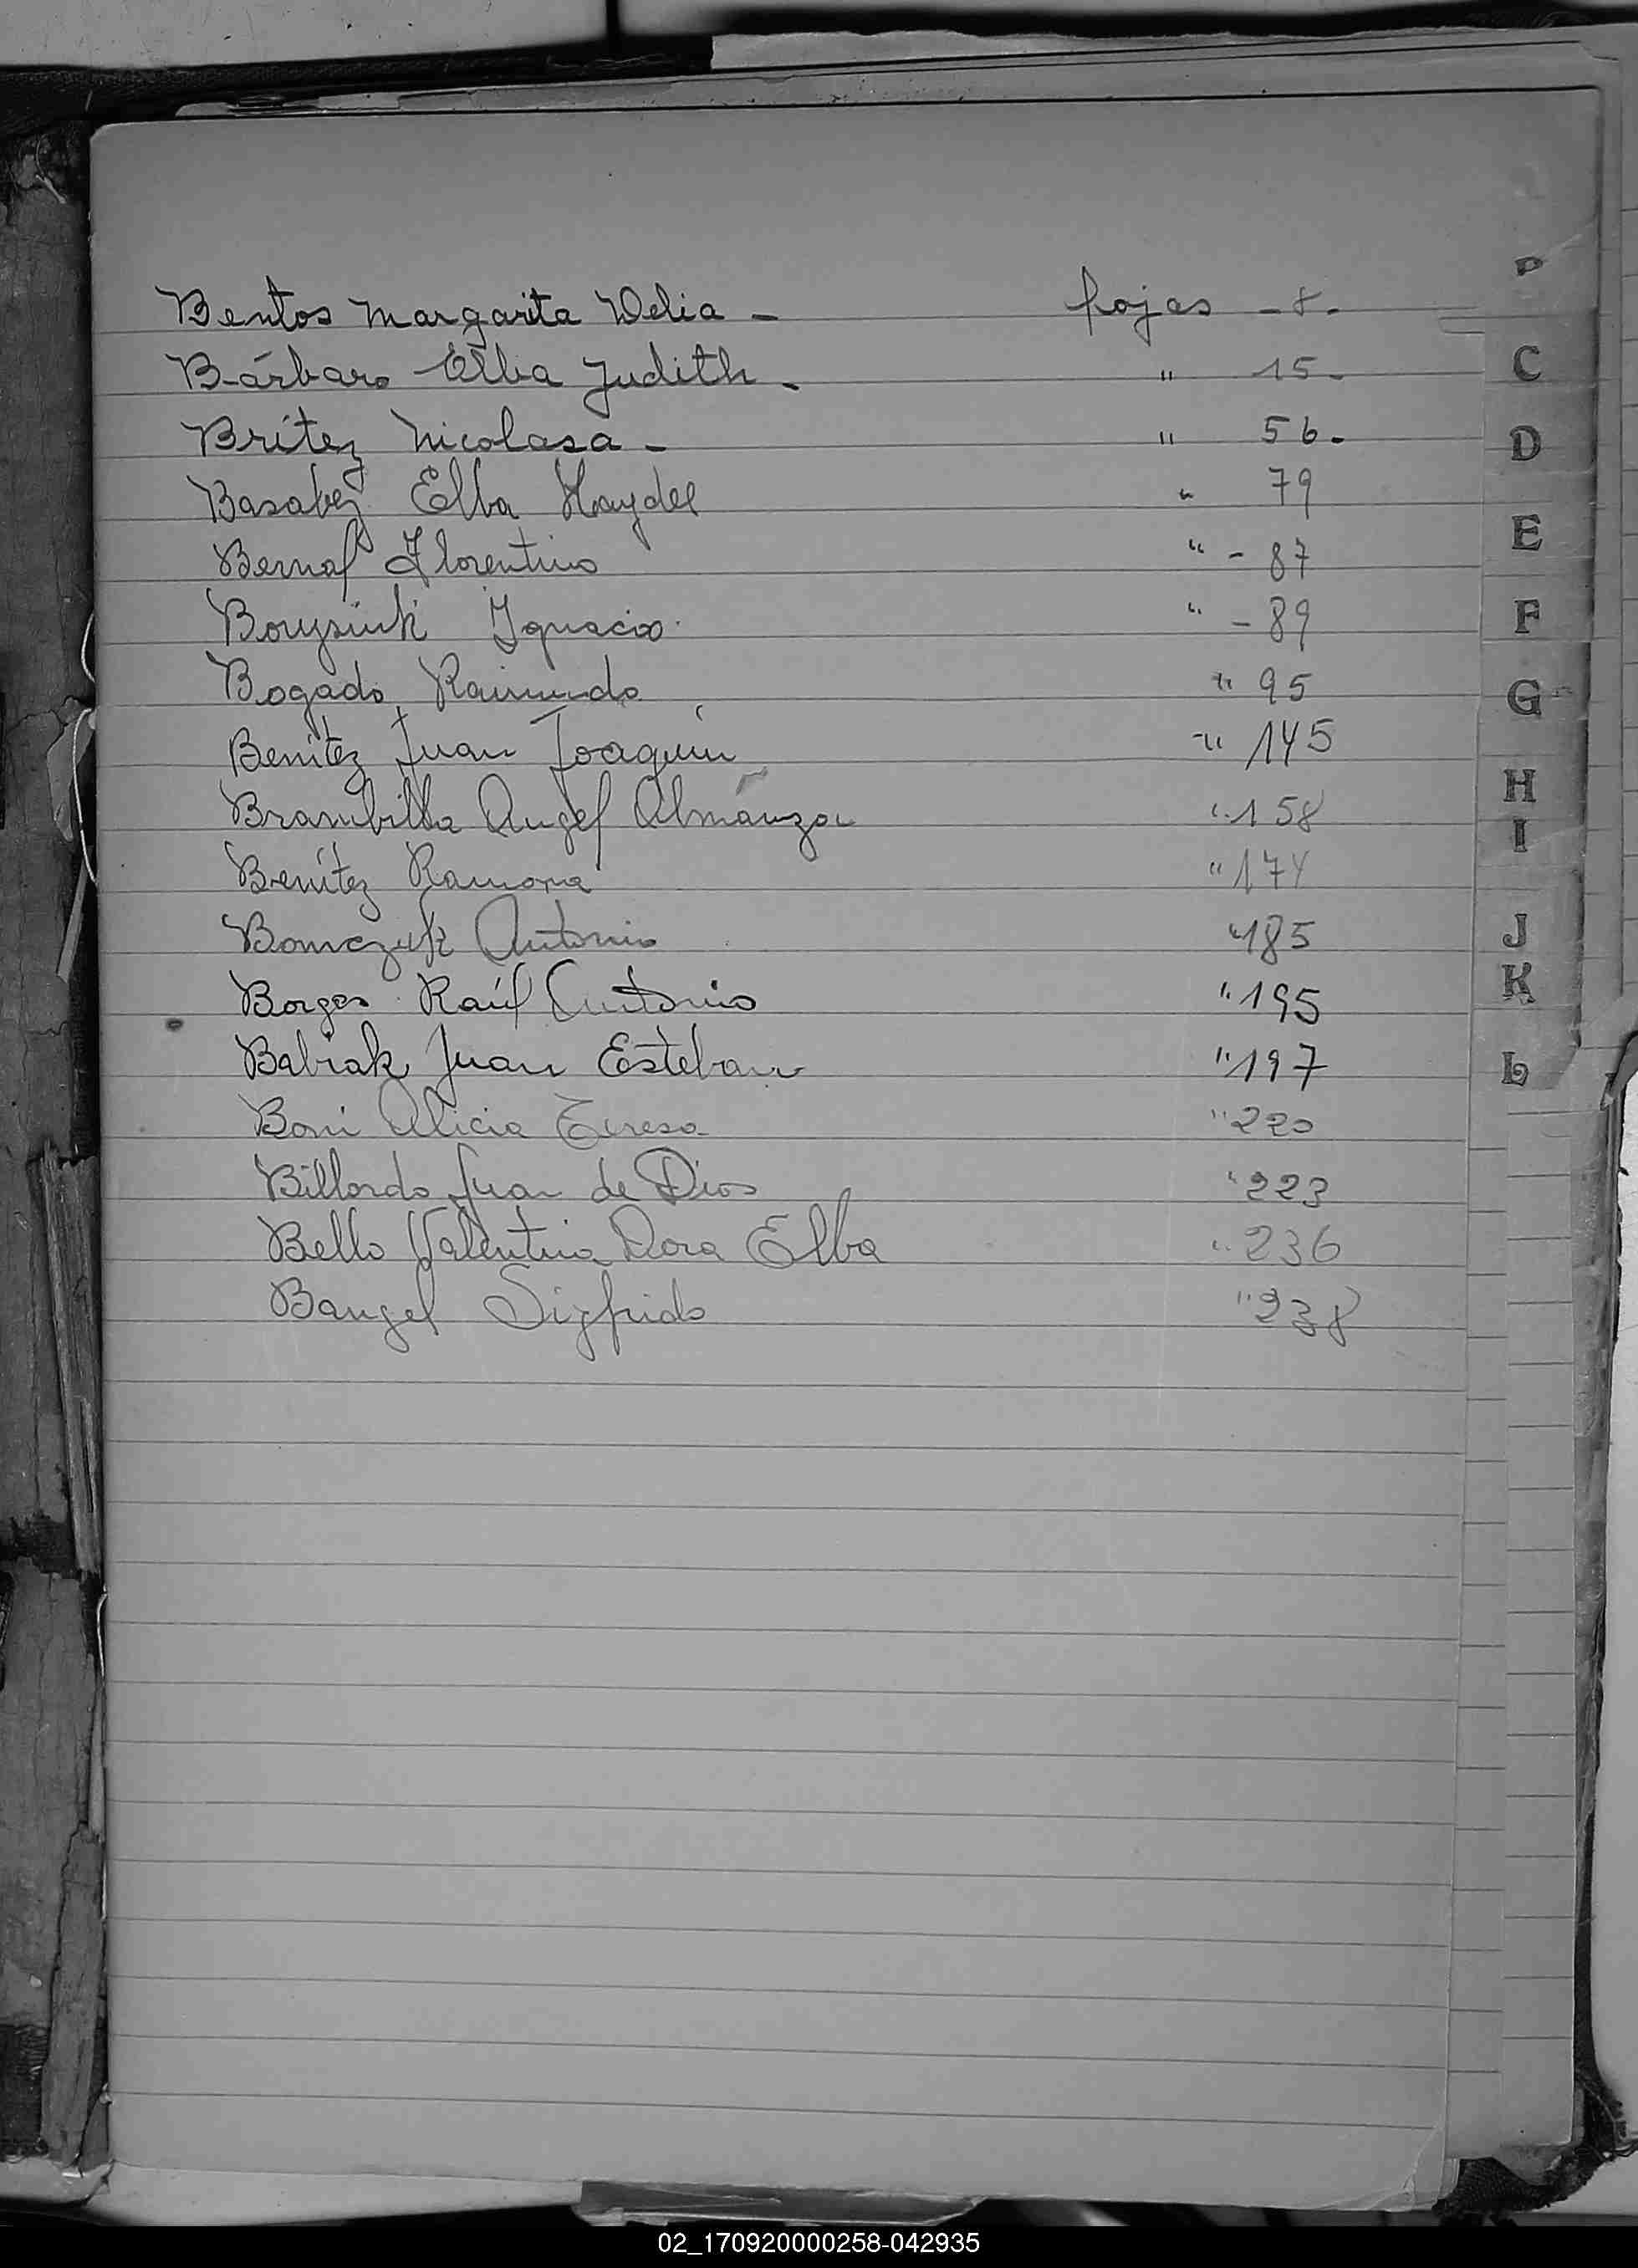 Bentos Margarita Delia - fojas - 8.-
Bárbaro Elba Judith - " 15.-
Brítez Nicolasa - " 56.-
Basabez Elba Haydee " 79
Bernal Florentino " - 87
Ignacio " - 89
Bogado Raimundo " 95
Benítez Juan Joaquín " 145
Brambilla Angel Almánzor " 158
Benítez Ramona " 174
Bomczuk Antonio " 185
Borges Raúl Antonio " 195
Babiak Juan Esteban " 197
Boni Alicia Teresa " 220
Billordo Juan de Dios " 223
Bello Valentina Dora Elba " 236
Bangel Sigfrido " 238
C
D
E
F
G
H
I
J
K
L
02_170920000258-042935